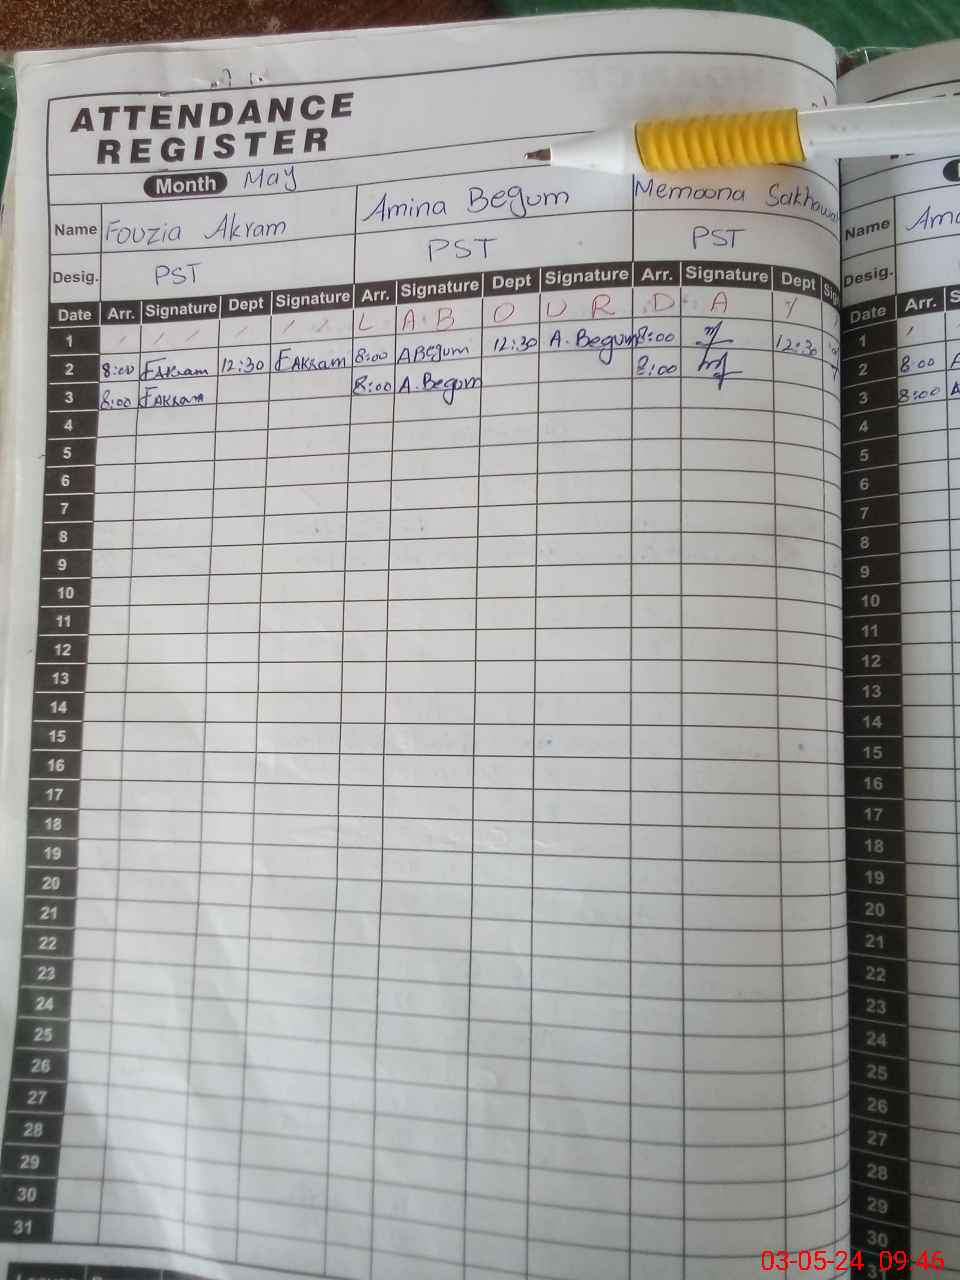 ATTENDANCE
REGISTER
Month May
Name Fouzia Akram Amina Begum Memoona Name
Desig. PST PST PST Desig.
Date Arr. Signature Dept Signature Arr. Signature Dept Signature Arr. Signature Dept Date Arr.
1 L A B O U R D A Y 1
2 8:00 FAkram 12:30 FAkram 8:00 ABegum 12:30 A.Begum 8:00 12:30 2 8:00
3 8:00 FAkram 8:00 A.Begum 8:00 3 8:00
4 4
5 5
6 6
7 7
8 8
9 9
10 10
11 11
12 12
13 13
14 14
15 15
16 16
17 17
18 18
19 19
20 20
21 21
22 22
23 23
24 24
25 25
26 26
27 27
28 28
29 29
30 30
31
03-05-24 09:46